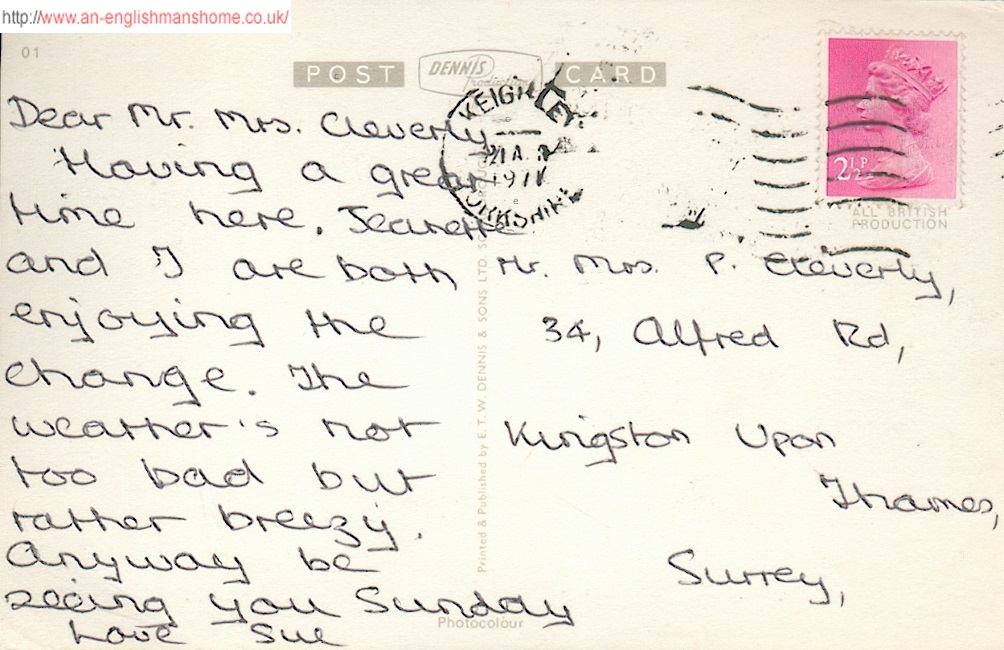 http://www.an-englishmanshome.co.uk/
01
POST DENNIS Productions CARD
KEIGHLEY
YORKSHIRE
2½P
ALL BRITISH
PRODUCTION
Dear Mr. Mrs. Cleverly
Having a great
time here. Jeanette
and I are both
enjoying the
change. The
weather's not
too bad but
rather breezy.
Anyway be
seeing you Sunday
Love Sue
Printed & Published by E.T.W. DENNIS & SONS LTD.
Mr. Mrs. P. Cleverly,
34, Alfred Rd,
Kingston Upon
Thames,
Surrey,
Photocolour